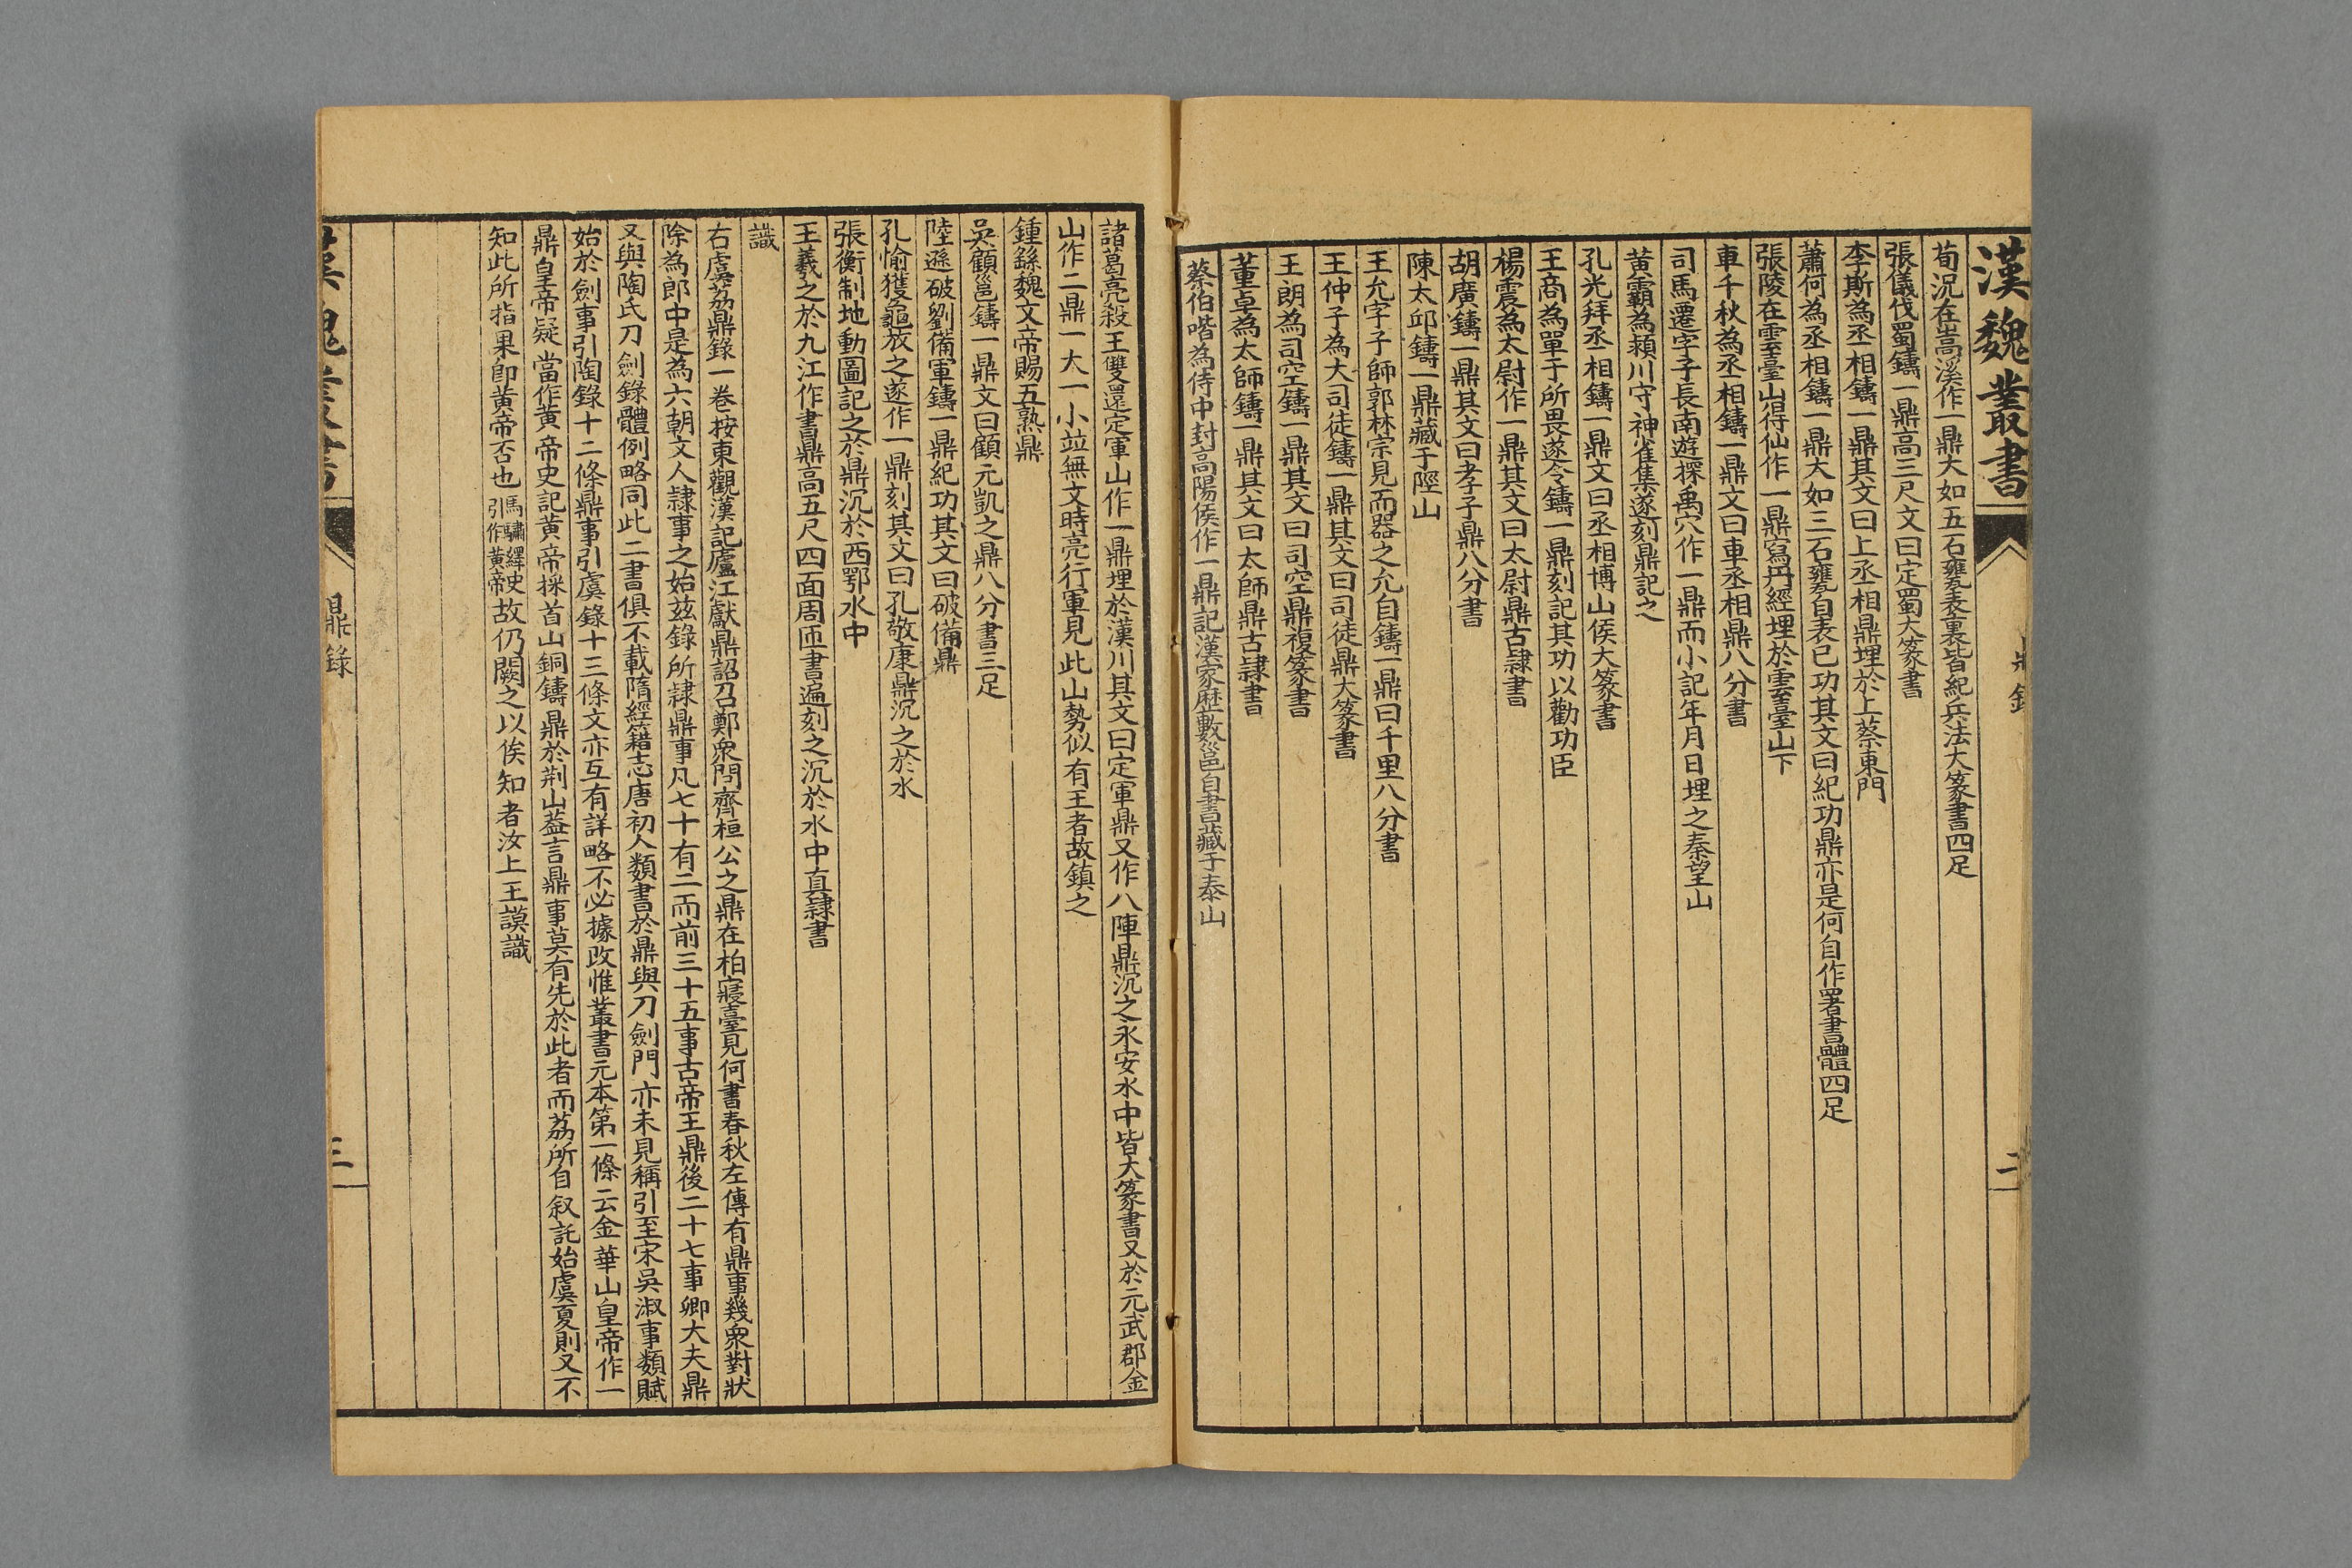 漢魏叢書
鼎錄
二
荀況在嵩溪作一鼎大如五石甕表裏皆紀兵法大篆書四足
張儀伐蜀鑄一鼎高三尺文曰定蜀大篆書
李斯為丞相鑄一鼎其文曰上丞相鼎埋於上蔡東門
蕭何為丞相鑄一鼎大如三石甕自表己功其文曰紀功鼎亦是何自作署書體四足
張陵在雲臺山得仙作一鼎寫丹經埋於雲臺山下
車千秋為丞相鑄一鼎文曰車丞相鼎八分書
司馬遷字子長南遊探禹穴作一鼎而小記年月日埋之秦望山
黃霸為潁川守神雀集遂刻鼎記之
孔光拜丞相鑄一鼎文曰丞相博山侯大篆書
王商為單于所畏遂令鑄一鼎刻記其功以勸功臣
楊震為太尉作一鼎其文曰太尉鼎古隸書
胡廣鑄一鼎其文曰孝子鼎八分書
陳太邱鑄一鼎藏于陘山
王允字子師郭林宗見而器之允自鑄一鼎曰千里八分書
王仲子為大司徒鑄一鼎其文曰司徒鼎大篆書
王朗為司空鑄一鼎其文曰司空鼎複篆書
董卓為太師鑄一鼎其文曰太師鼎古隸書
蔡伯喈為侍中封高陽侯作一鼎記漢家歷數邕自書藏于泰山
諸葛亮殺王雙還定軍山作一鼎埋於漢川其文曰定軍鼎又作八陣鼎沉之永安水中皆大篆書又於元武郡金
山作二鼎一大一小竝無文時亮行軍見此山勢似有王者故鎮之
鍾繇魏文帝賜五熟鼎
吳顧邕鑄一鼎文曰顧元凱之鼎八分書三足
陸遜破劉備軍鑄一鼎紀功其文曰破備鼎
孔愉獲龜放之遂作一鼎刻其文曰孔敬康鼎沉之於水
張衡制地動圖記之於鼎沉於西鄂水中
王羲之於九江作書鼎高五尺四面周匝書遍刻之沉於水中真隸書
識
右虞荔鼎錄一卷按東觀漢記廬江獻鼎詔召鄭眾問齊桓公之鼎在柏寢臺見何書春秋左傳有鼎事幾眾對狀
除為郎中是為六朝文人隸事之始茲錄所隸鼎事凡七十有二而前三十五事古帝王鼎後二十七事卿大夫鼎
又與陶氏刀劍錄體例略同此二書俱不載隋經籍志唐初人類書於鼎與刀劍門亦未見稱引至宋吳淑事類賦
始於劍事引陶錄十二條鼎事引虞錄十三條文亦互有詳略不必據改惟叢書元本第一條云金華山皇帝作一
鼎皇帝疑當作黃帝史記黃帝採首山銅鑄鼎於荆山葢言鼎事莫有先於此者而荔所自叙託始虞夏則又不
知此所指果即黃帝否也馬驌繹史引作黃帝故仍闕之以俟知者汝上王謨識
漢魏叢書
鼎錄
三